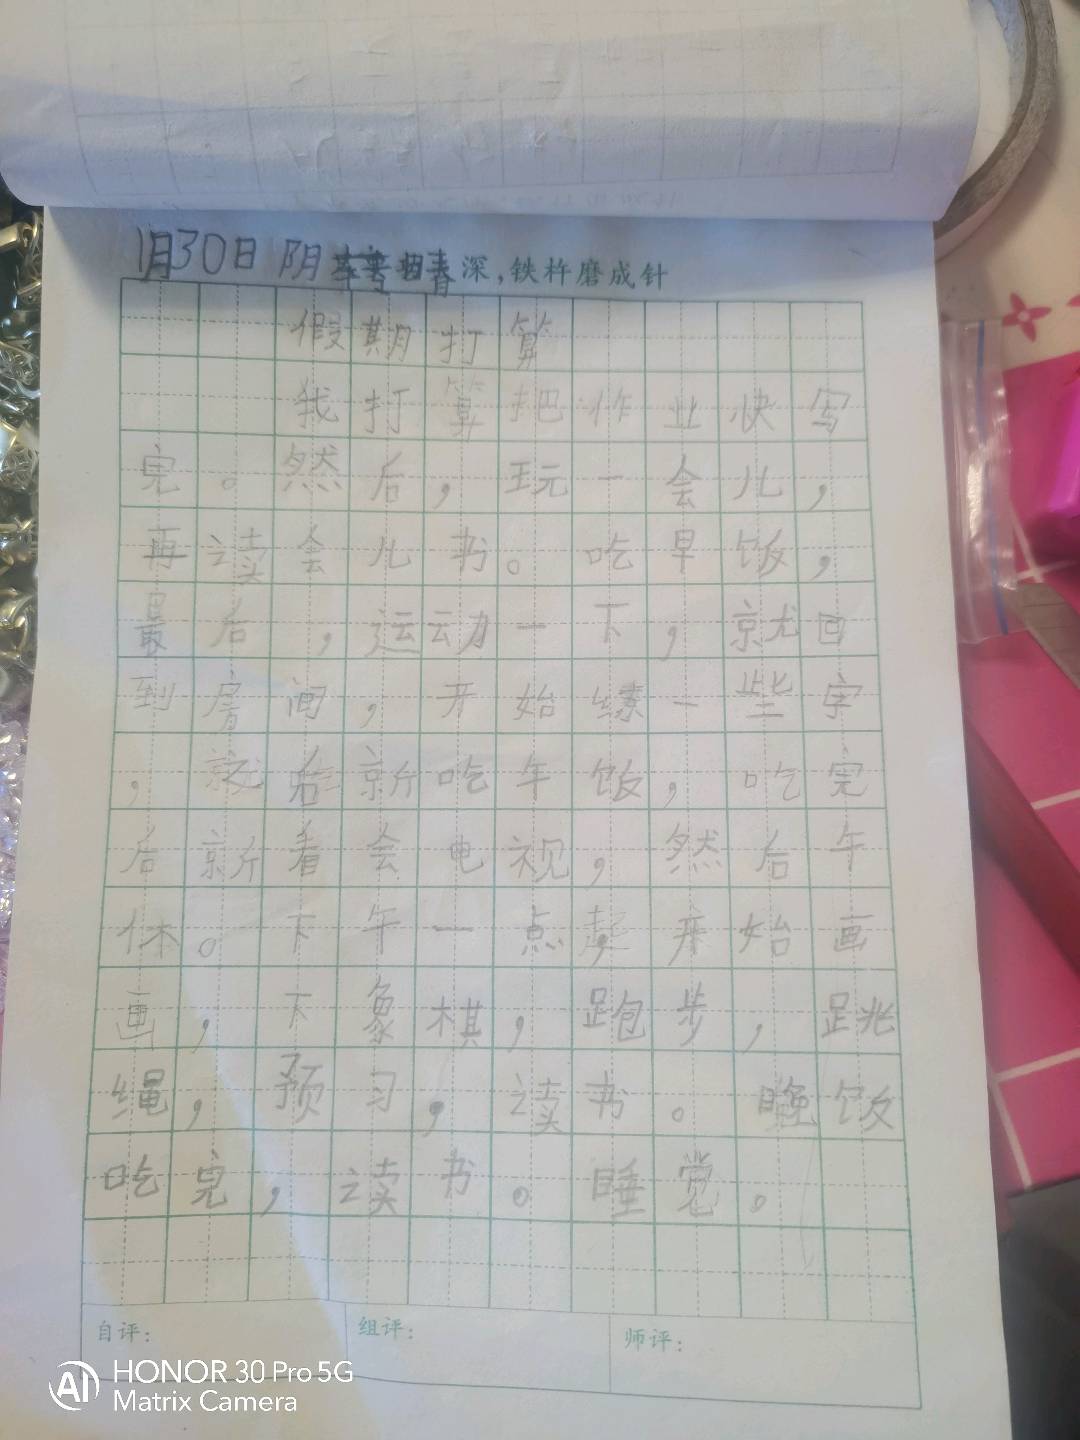 1月30日 阴 深,铁杵磨成针
假期打算
我打算把作业快写
完。然后,玩一会儿,
再读会儿书。吃早饭,
最后,运动一下,就回
到房间,开始练一些字
,然后就吃午饭,吃完
后就看会电视,然后午
休。下午一点起,开始画
画,下象棋,跑步,跳
绳,预习,读书。晚饭
吃完,读书。睡觉。
自评: 组评: 师评:
HONOR 30 Pro 5G
Matrix Camera